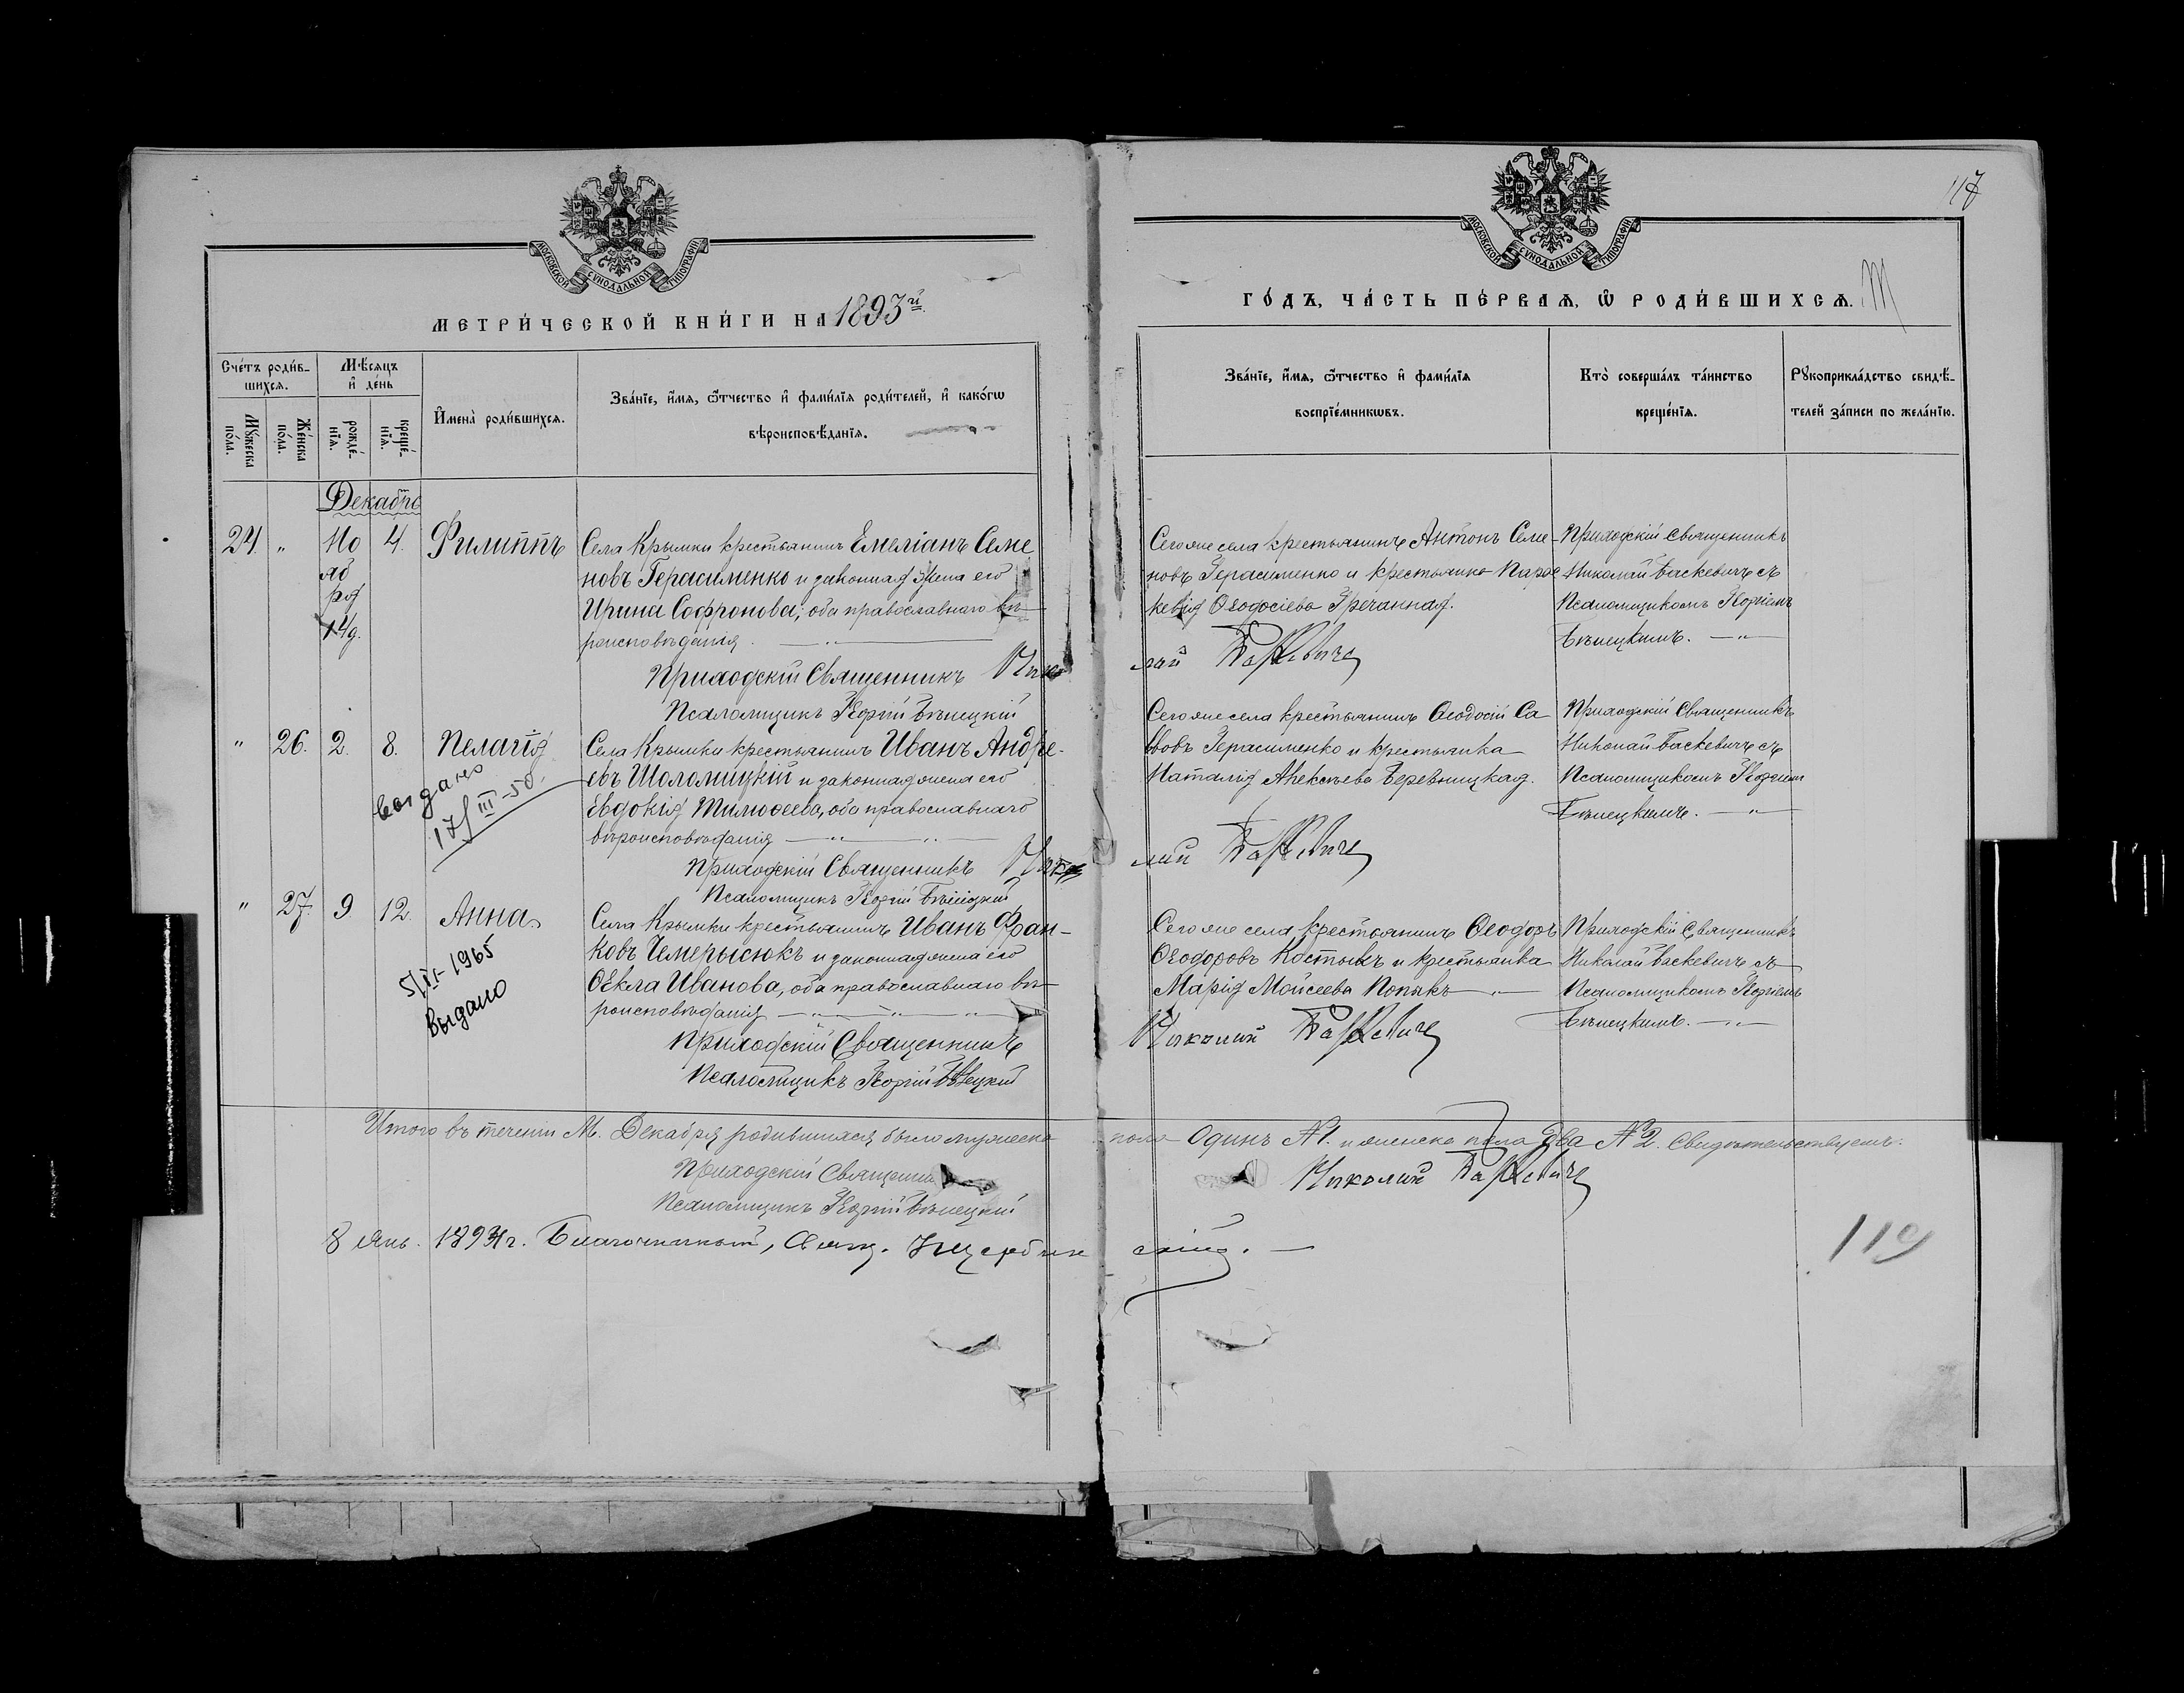 МОСКОВСКОЙ СУНОДАЛЬНОЙ ТИПОГРАФІИ
МЕТРИ́ЧЕСКОЙ КНИ́ГИ НА 1893й
Сче́тъ роди́в-
шихся.
Мꙋ́жеска
по́ла.
Же́нска
по́ла.
Мѣ́сяцъ
и де́нь
рожде́-
нїя.
креще́-
нїя.
Имена̀ роди́вшихся.
Зва́нїе, и́мя, ѿтчество и фами́лїя роди́телей, и како́гѡ
вѣроисповѣ́данїя.
Декабрь
24. " Но 4. Филиппъ
яб
ря
14д.
Села Крымки крестьянинъ Емеліанъ Семе
новъ Герасименко и законная жена его
Ирина Софронова; оба православнаго вѣ-
роисповѣданія.
Приходскій Священникъ Нико
Псаломщикъ Георгій Бѣнецкій
" 26. 2. 8. Пелагія
выдано
17/III-50.
Села Крымки крестьянинъ Иванъ Андре-
евъ Шоломицкій и законная жена его
Евдокія Тимофеева, оба православнаго
вѣроисповѣданія
Приходскій Священникъ Нико
Псаломщикъ Георгій Бѣнецкій
" 27. 9. 12. Анна
5/II-1965
Выдано
Села Крымки крестьянинъ Иванъ Фран-
ковъ Чемерысюкъ и законная жена его
Ѳекла Иванова, оба православнаго вѣ-
роисповѣданія
Приходскій Священникъ
Псаломщикъ Георгій Бѣнецкій
Итого въ теченіи М. Декабря родившихся было мужеска
Приходскій Священни
Псаломщикъ Георгій Бѣнецкій
8 Янв. 1894 г. Благочинный, Свящ.
117
МОСКОВСКОЙ СУНОДАЛЬНОЙ ТИПОГРАФІИ
ГО́ДЪ, ЧА́СТЬ ПЕ́РВАЯ, Ѡ РОДИ́ВШИХСЯ.
Зва́нїе, и́мя, ѿтчество и фами́лїя
воспрїе́мникѡвъ.
Кто̀ соверша́лъ та́инство
креще́нїя.
Рꙋкоприкла́дство свидѣ́-
телей за́писи по жела́нїю.
Сего же села крестьянинъ Антонъ Семе-
новъ Герасименко и крестьянка Парас
кевія Ѳеодосіева Гречанная.
лай Баскевичъ
Приходскій Священникъ
Николай Баскевичъ съ
Псаломщикомъ Георгіемъ
Бѣнецкимъ.
Сего же села крестьянинъ Ѳеодосій Са
ввовъ Герасименко и крестьянка
Наталія Алексѣева Березницкая.
лай Баскевичъ
Приходскій Священникъ
Николай Баскевичъ съ
Псаломщикомъ Георгіем
Бѣнецкимъ.
Сего же села крестьянинъ Ѳеодоръ
Ѳеодоровъ Костывъ и крестьянка
Марія Моисеева Попыкъ
Николай Баскевичъ
Приходскій Священникъ
Николай Баскевичъ съ
Псаломщикомъ Георгіемъ
Бѣнецкимъ.
пола Одинъ №1. и женска пола два №2. Свидѣтельствуемъ:
Николай Баскевичъ